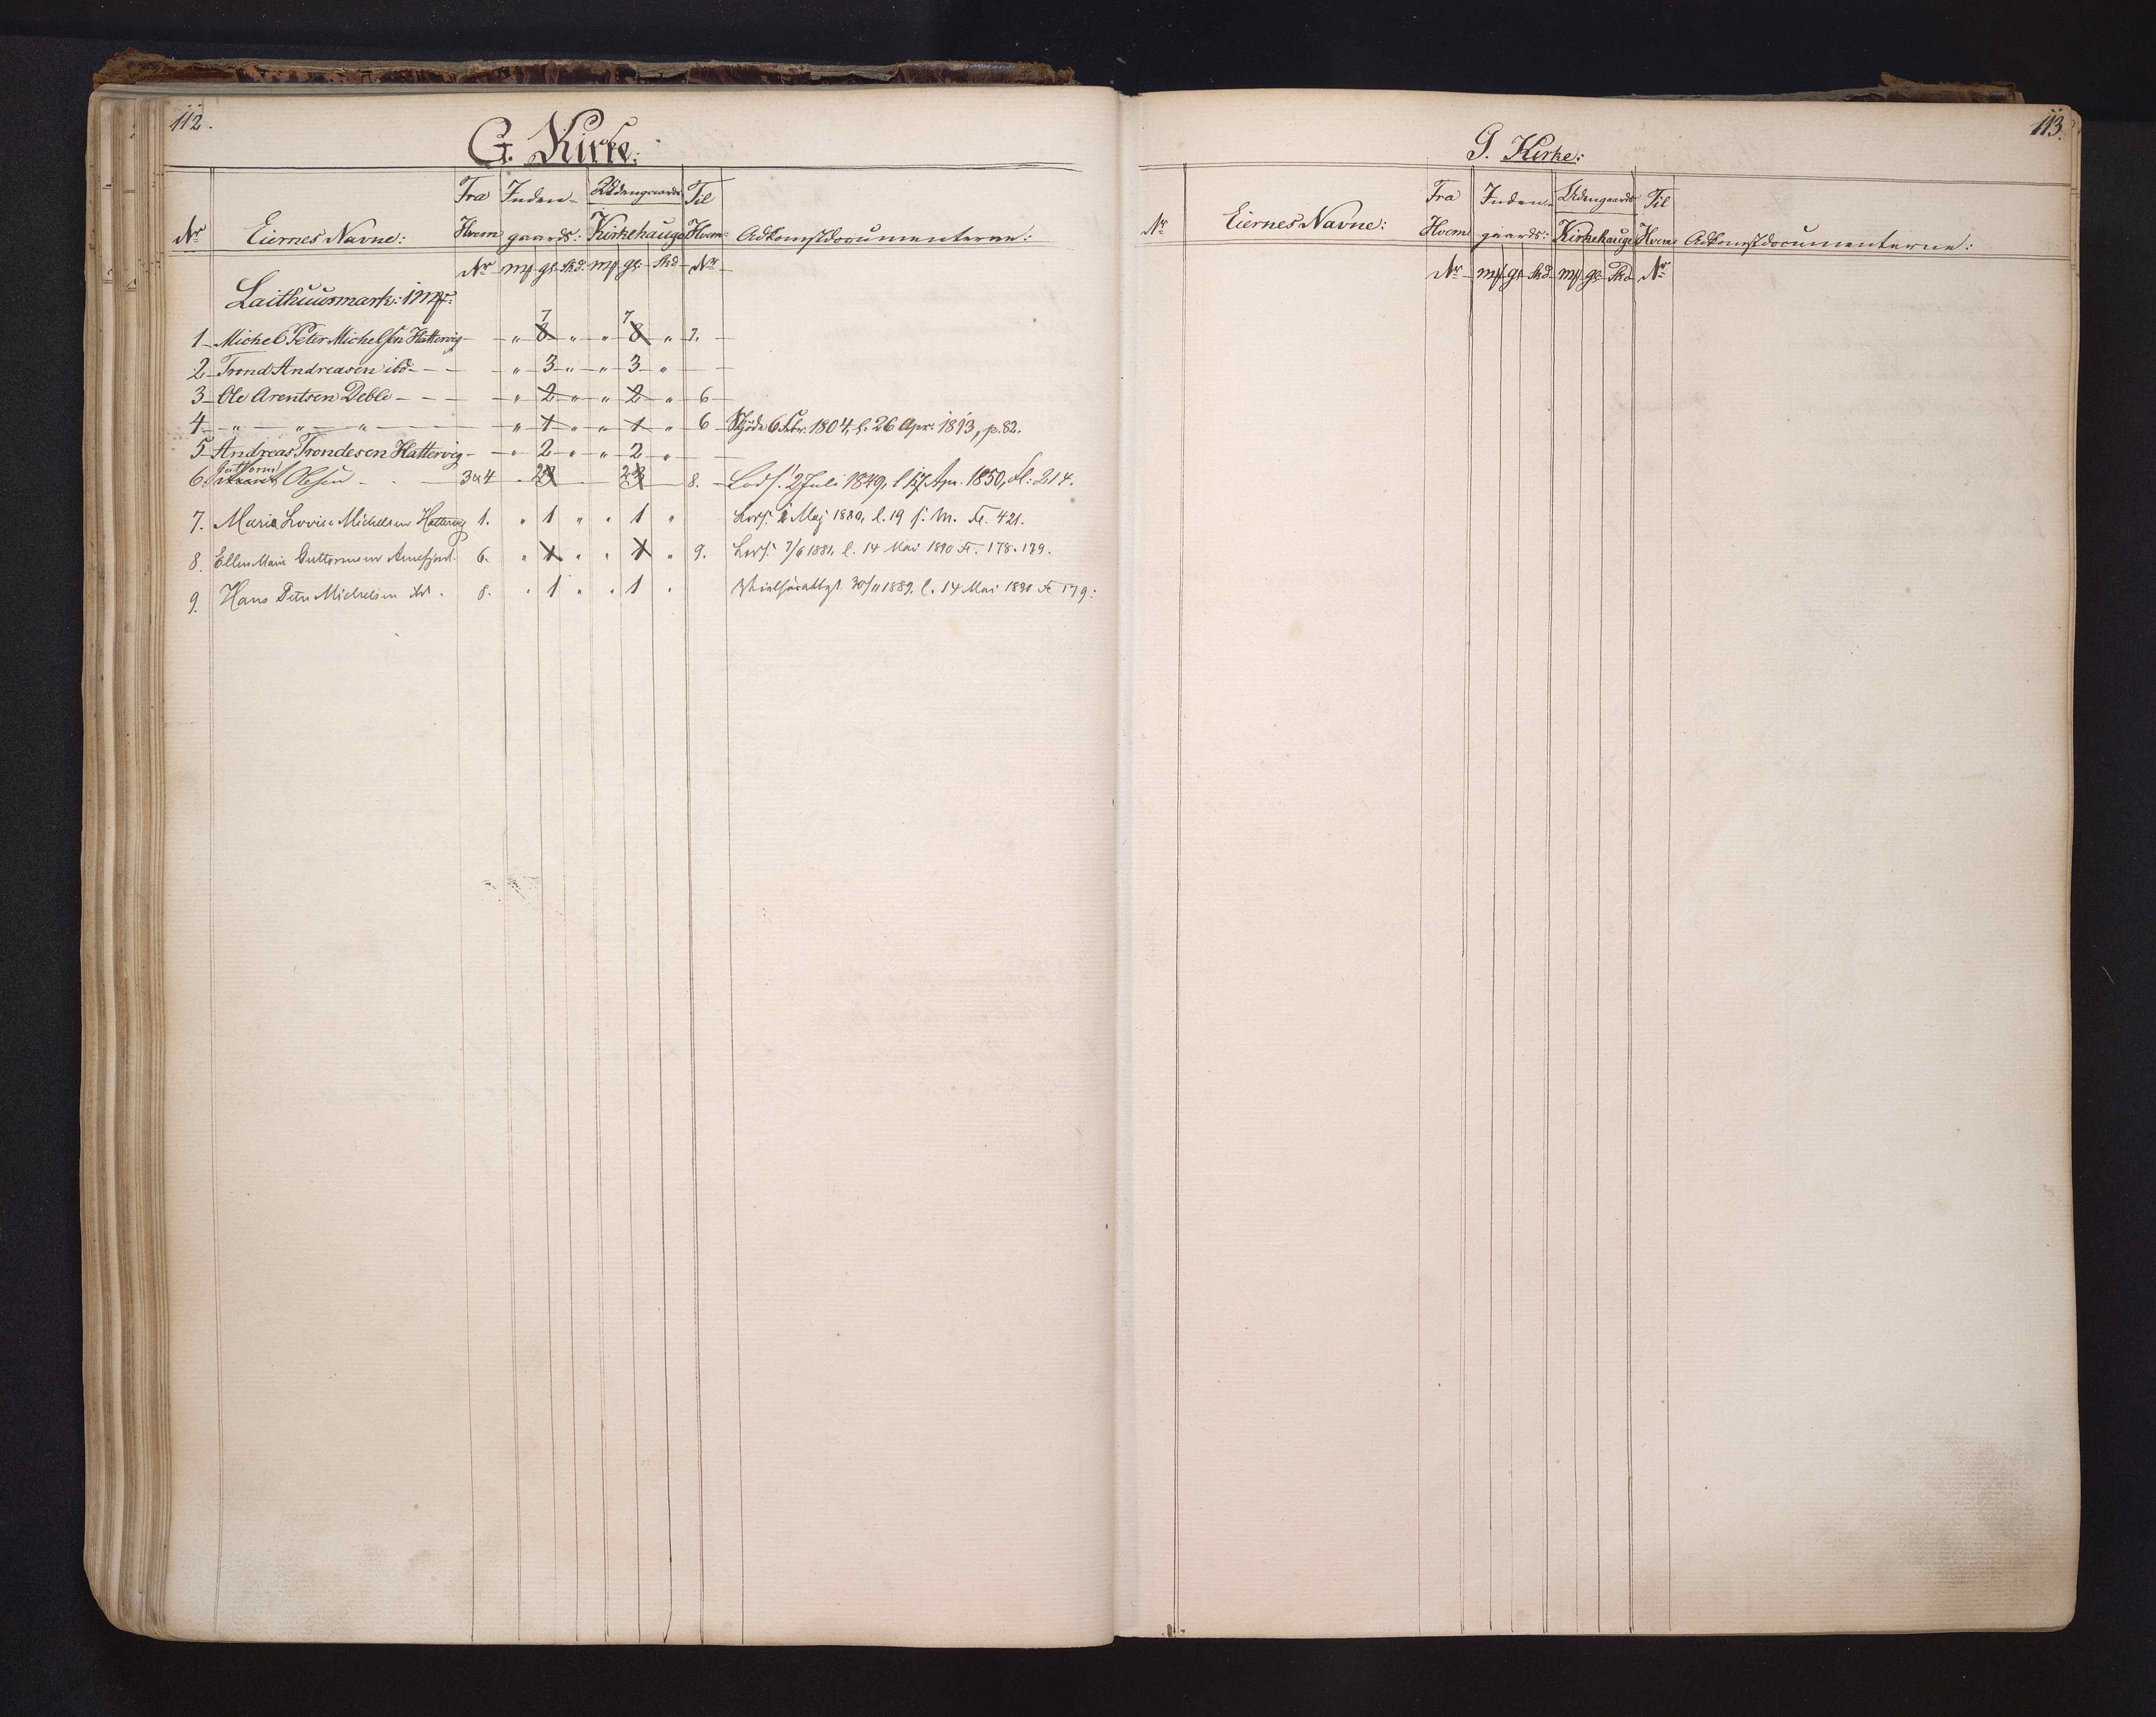 112.
G. Kirke:
Nr Eiernes Navne: Fra Hvem Inden- gaards: Udengaards Kirkehauge Til Hvem Adkomstdocumenterne:
Nr mf gl. Skd. mf gl. Skd Nr
Laithuusmark: 1 mf:
1 Michel Peter Michelsen Hattervig - " 8 7 " " 8 7 " 7.
2 Trond Andreasen ibd. - - " 3 " " 3 "
3 Ole Arentsen Deble - - - " 2 " " 2 " 6
4 " " " " 1 " " 1 " 6 Skjøde 6 Febr. 1804, l. 26 Apr. 1813, p. 82.
5 Andreas Trondesen Hattervig - " 2 " " 2 "
6. Guttorm Olesen 3 & 4 2 3 2 3 8. Lods. 2 Juli 1849, l 17 Apr. 1850, Fl: 214.
7. Marie Lovise Michelsen Hattervig 1. " 1 " " 1 " 2 Maj 1880, l. 19 s. M. Fl. 421.
8. Ellen Marie Guttormsen Arnefjord. 6. " 1 " " 1 " 9. 7/6 1881, l. 14 Mai 1890 Fl. 178-179.
9. Hans Peter Michelsen ibd. 8. " 1 " " 1 " 30/11 1889, l. 14 Mai 1890 Fl 179:
113.
G. Kirke:
Nr Eiernes Navne: Fra Hvem Inden- gaards: Udengaards Kirkehauge Til Hvem Adkomstdocumenterne:
Nr mf gl Skd. mf gl. Skd Nr